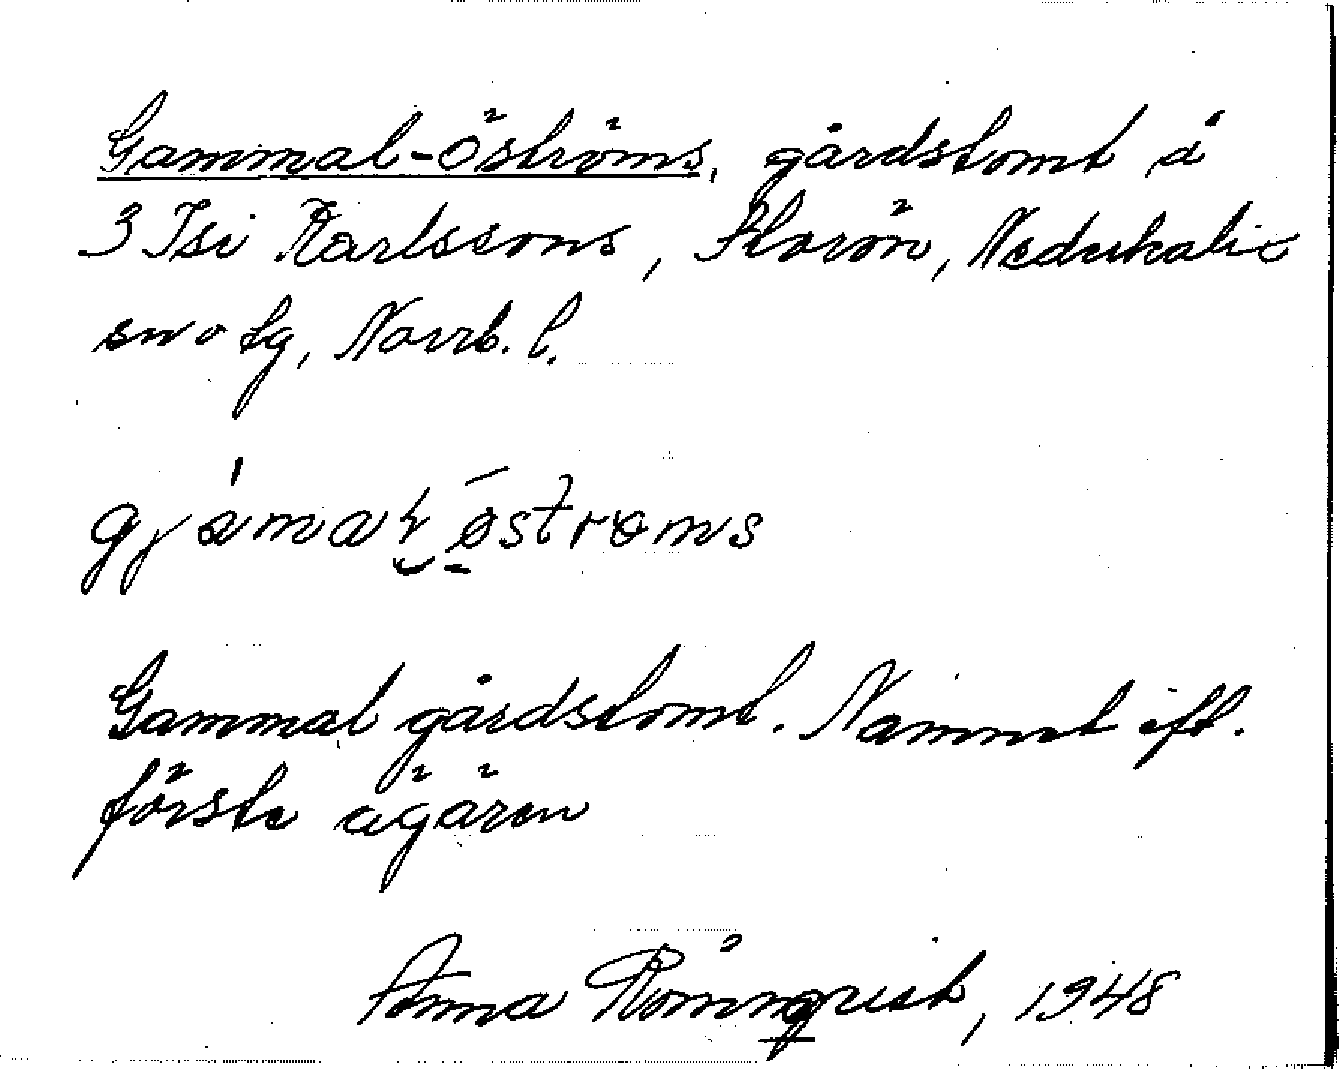 Gammal-Öströms, gårdstomt å
3 Isi Karlssons, Storön, Nederkalix
sn o tg, Norrb. l.
gjamaḷ östroms
Gammal gårdstomt. Namnet eft.
förste ägaren
Anna Rönnqvist, 1948